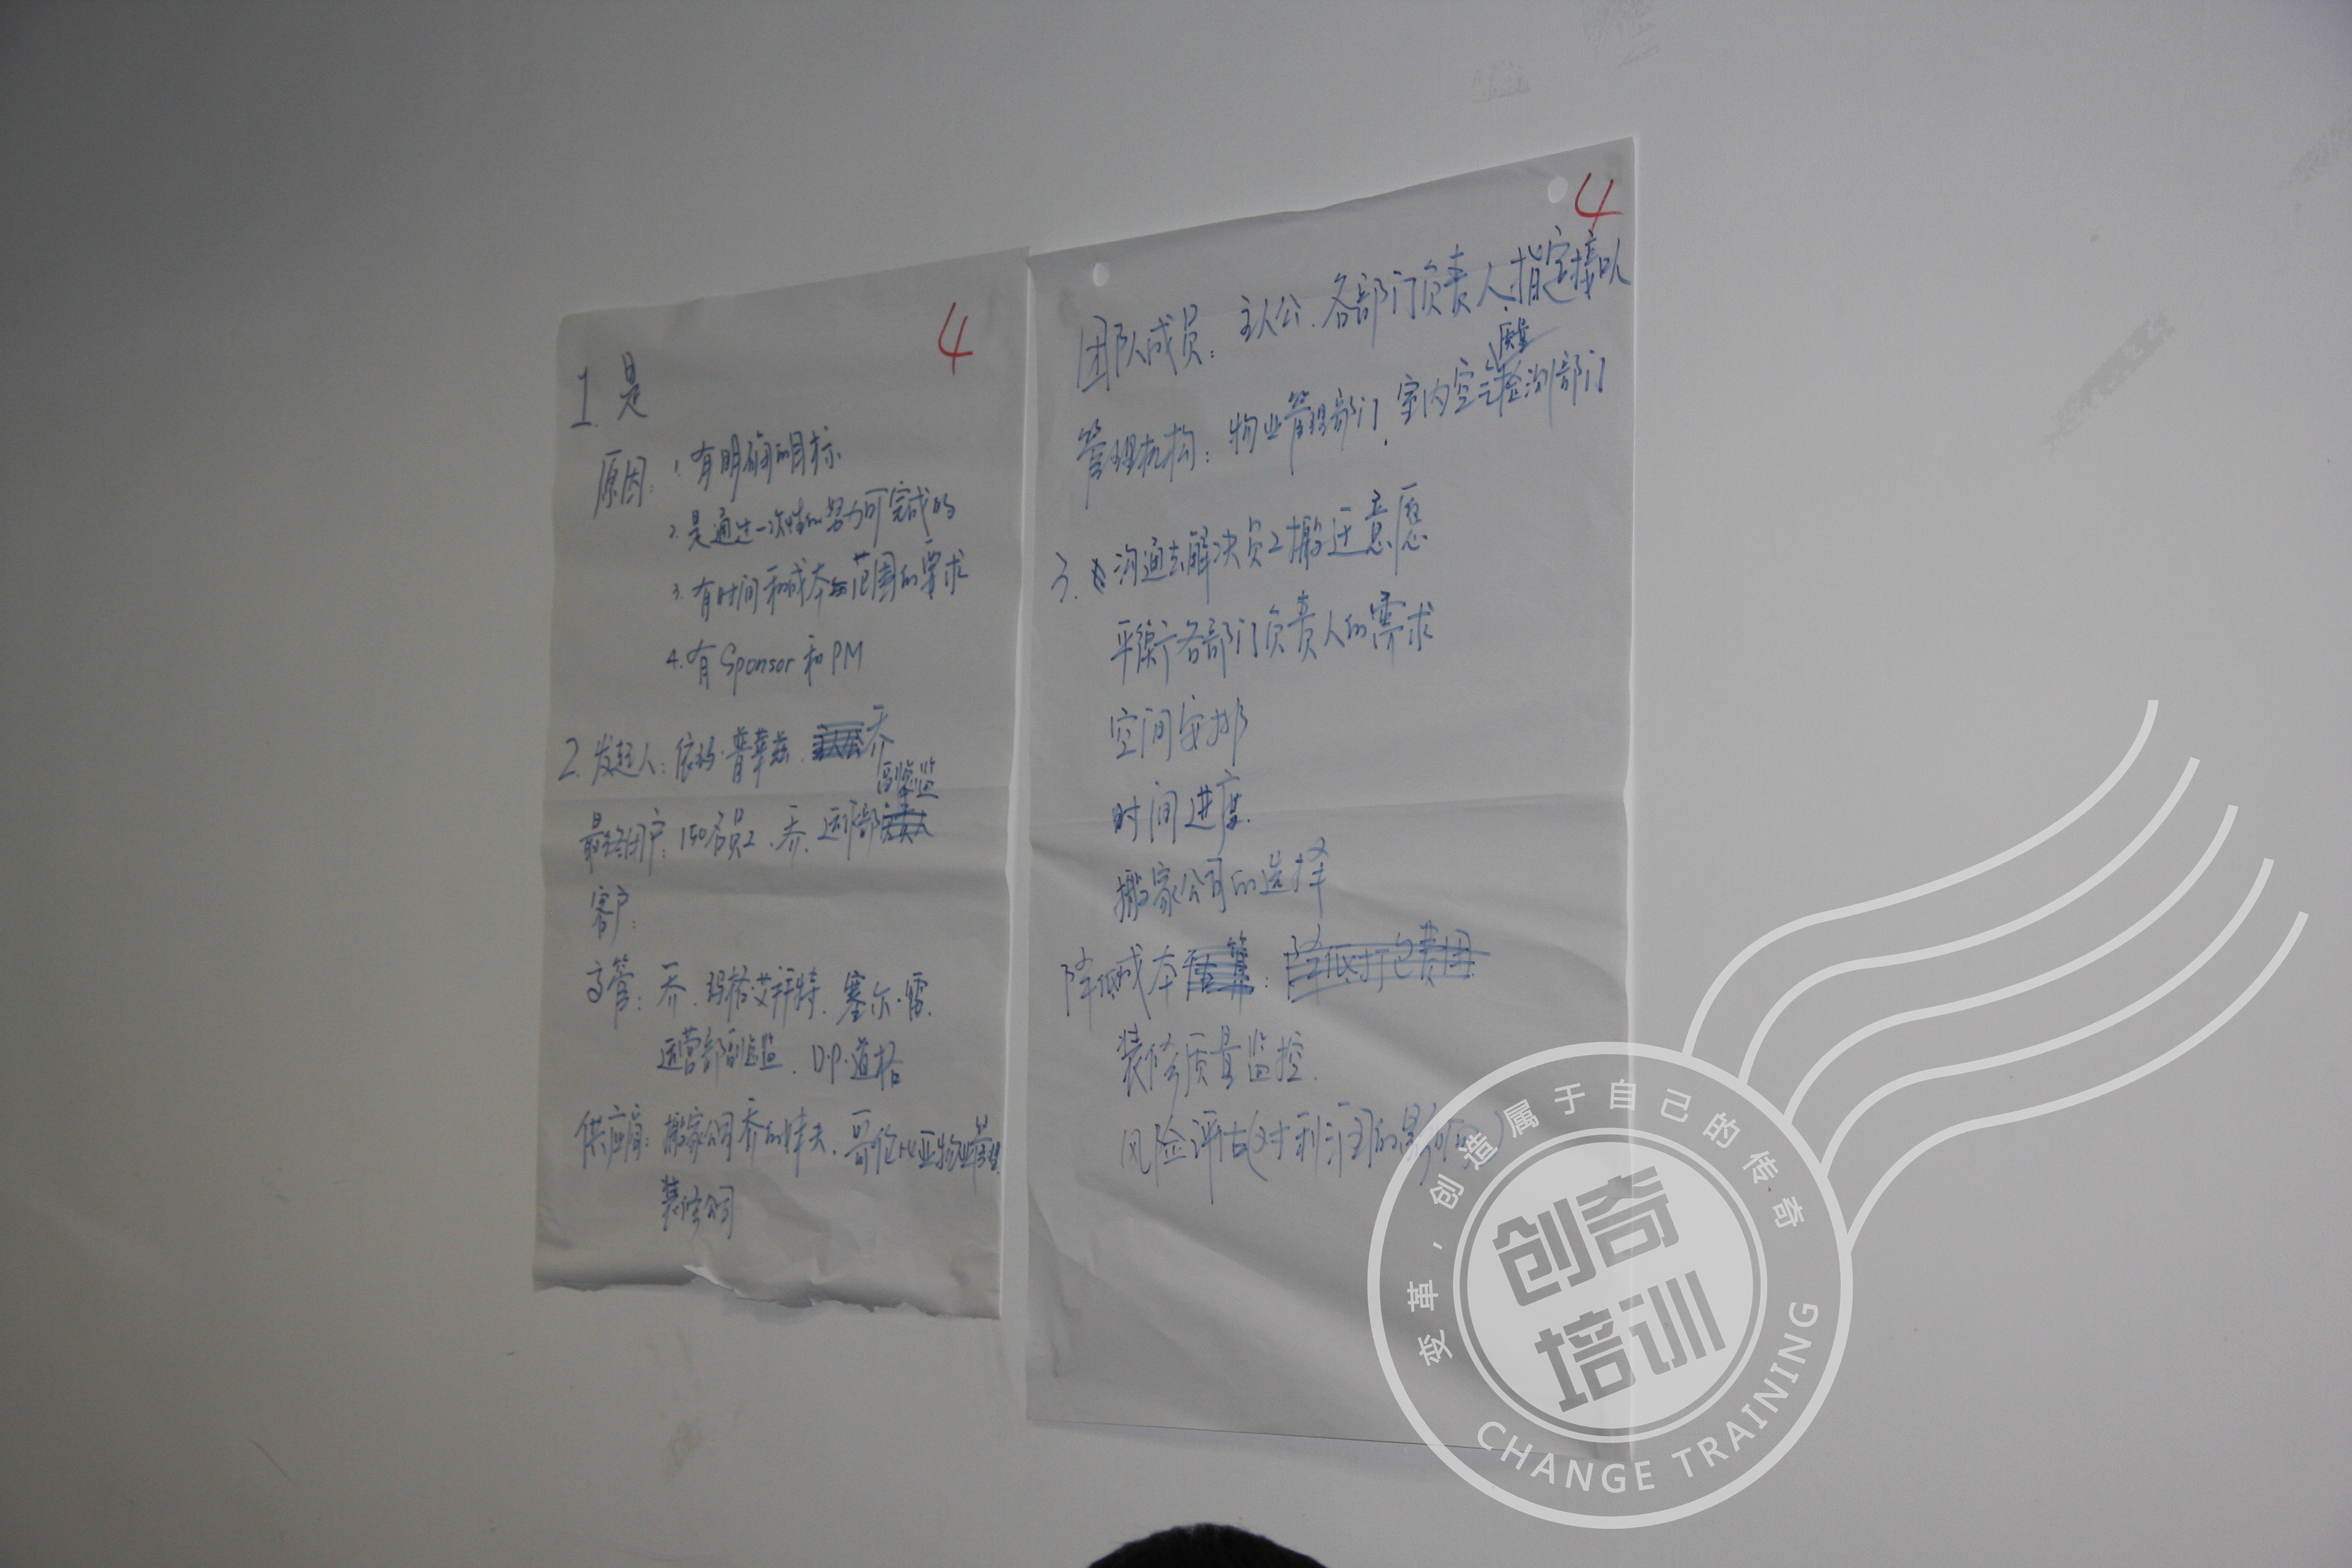 4
1. 是
原因: 1. 有明确的目标.
2. 是通过一次性的努力可完成的
3. 有时间和成本与范围的要求
4. 有 Sponsor 和 PM
2. 发起人: 依玛·普华兹. 乔
副总监
最终用户: 150名员工. 乔. 运作部
客户:
高管: 乔. 玛格·艾莉特. 塞尔·雷.
运营部副总监. D·P·道格
供应商: 搬家公司乔的妹夫. 哥伦比亚物业管理.
装修公司
4
团队成员: 主人公. 各部门负责人. 指定接口人
管理机构: 物业管理部门. 室内空气质量检测部门
3. 沟通去解决员工搬迁意愿
平衡各部门负责人的需求
空间安排
时间进度.
搬家公司的选择
降低成本: 降低打包费用
装修质量监控.
风险评估(对利润的影响)
变革,创造属于自己的传奇
创奇
培训
CHANGE TRAINING